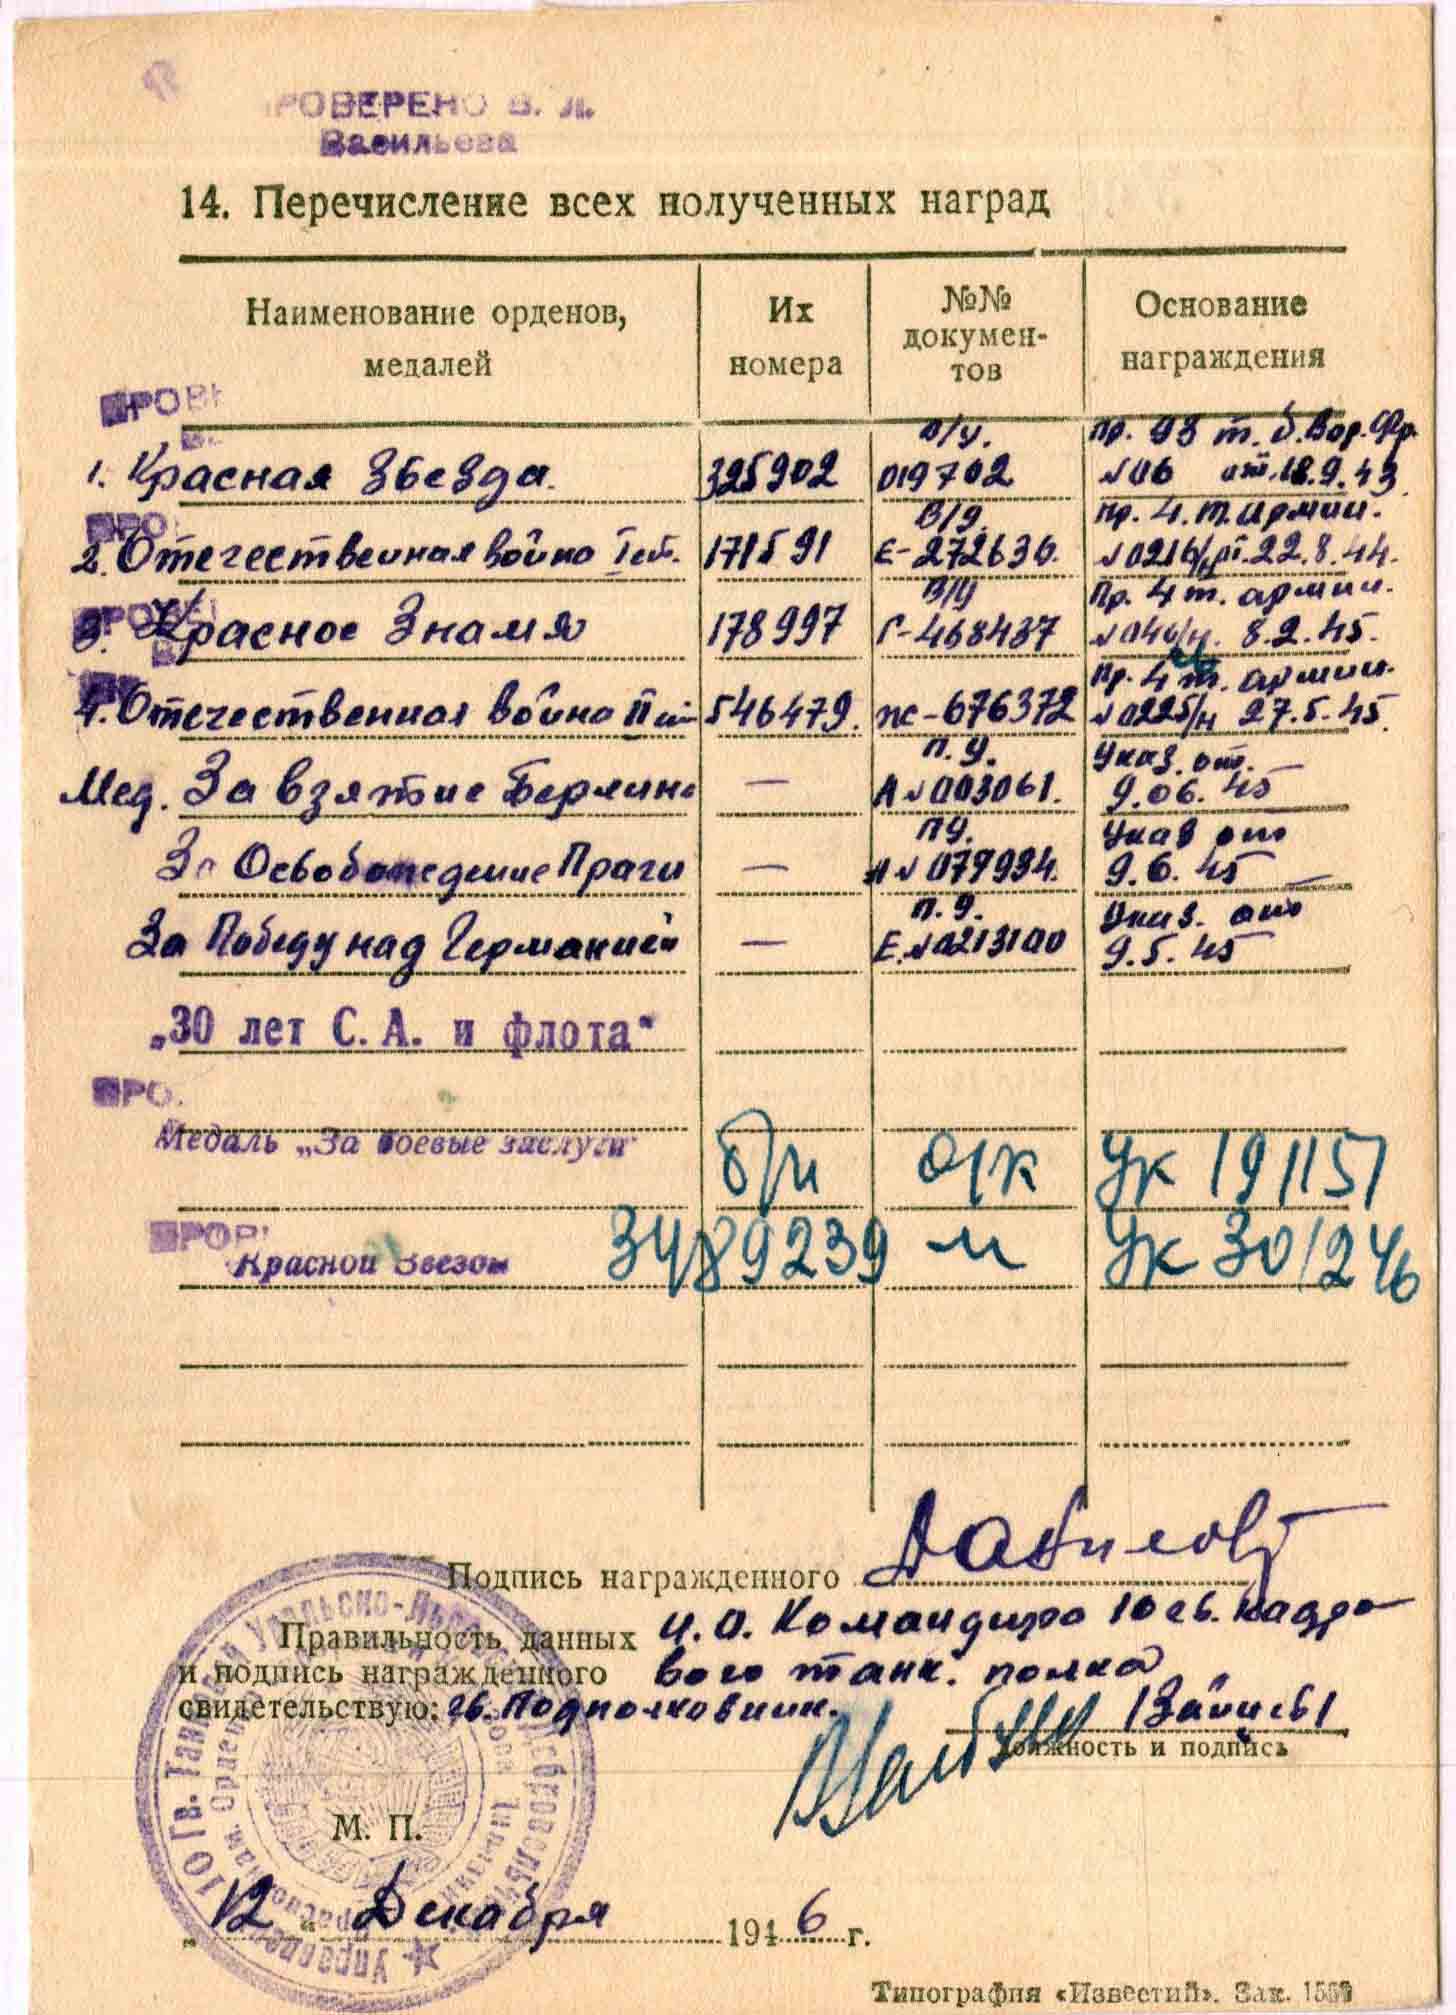 ПРОВЕРЕНО В. Л.
Васильева
14. Перечисление всех полученных наград
Наименование орденов, медалей
Их номера
№№ докумен-тов
Основание награждения
ПРОВЕ
в/у. пр. 93 т. б. Вор. Фр.
1. Красная Звезда. 325902 019702 №06 от 18.9.43
ПРО
В/у. пр. 4. т. армии.
2. Отечественная война I ст. 171591 Е-272630. №0216/н от. 22.8.44.
ПРОВЕ
В/у Пр. 4 т. армии.
3. Красное Знамя 178997 Г-468437 №040/н. 8.2.45.
Пр. 4 т. армии.
4. Отечественная война II ст 546479. Ж-676372 №0225/н 27.5.45.
п. у. Указ. от.
Мед. За взятие Берлина — А №003061. 9.06.45
пу. Указ от
За Освобождение Праги — А № 079994. 9.6.45
п. у. Указ. от
За Победу над Германией — Е.№0213100 9.5.45
„30 лет С. А. и флота“
ПРО.
Медаль „За боевые заслуги“ б/н о/к Ук 191/51
ПРОВ
Красной Звезды 3489239 м Ук 30/246
Подпись награжденного Давилов
Правильность данных и. о. Командира 10 гв. кадро-
и подпись награжденного вого танк. полка
свидетельствую: гв. Подполковник. /Зайцев/
должность и подпись
10 Гв. Танковой Уральско-Львовской
М. П.
„12 “ Декабря 1946 г.
Типография «Известий». Зак. 1557